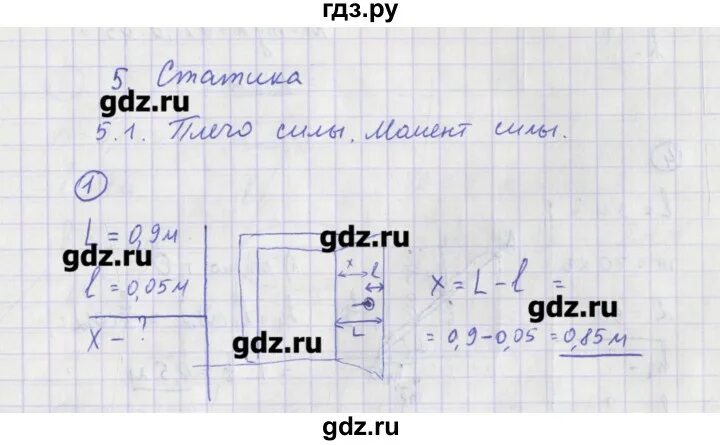 гдз.ру
5. Статика
gdz.ru
5.1. Плечо силы. Момент силы.
1
L = 0,9м
gdz.ru
gdz.ru
l = 0,05м
x l
x = L - l =
gdz.ru
x - ?
gdz.ru
L
= 0,9 - 0,05 = 0,85м
gdz.ru